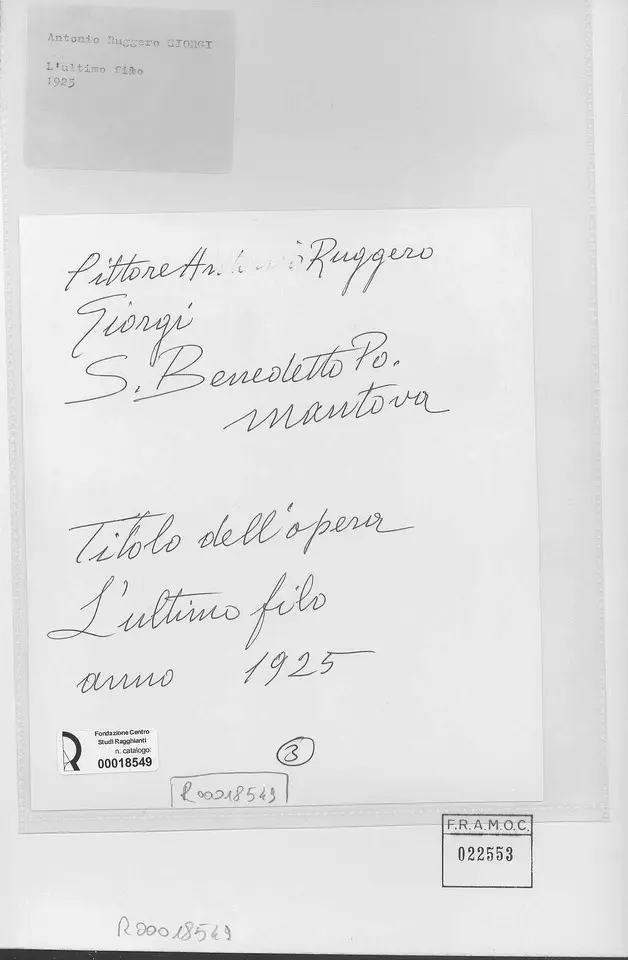 Antonio Ruggero GIORGI
L'ultimo filo
1925
Pittore Antonio Ruggero
Giorgi
S. Benedetto Po.
Mantova
Titolo dell'opera
L'ultimo filo
anno 1925
Fondazione Centro
Studi Ragghianti
n. catalogo:
00018549
3
R00018549
F.R.A.M.O.C.
022553
R00018549